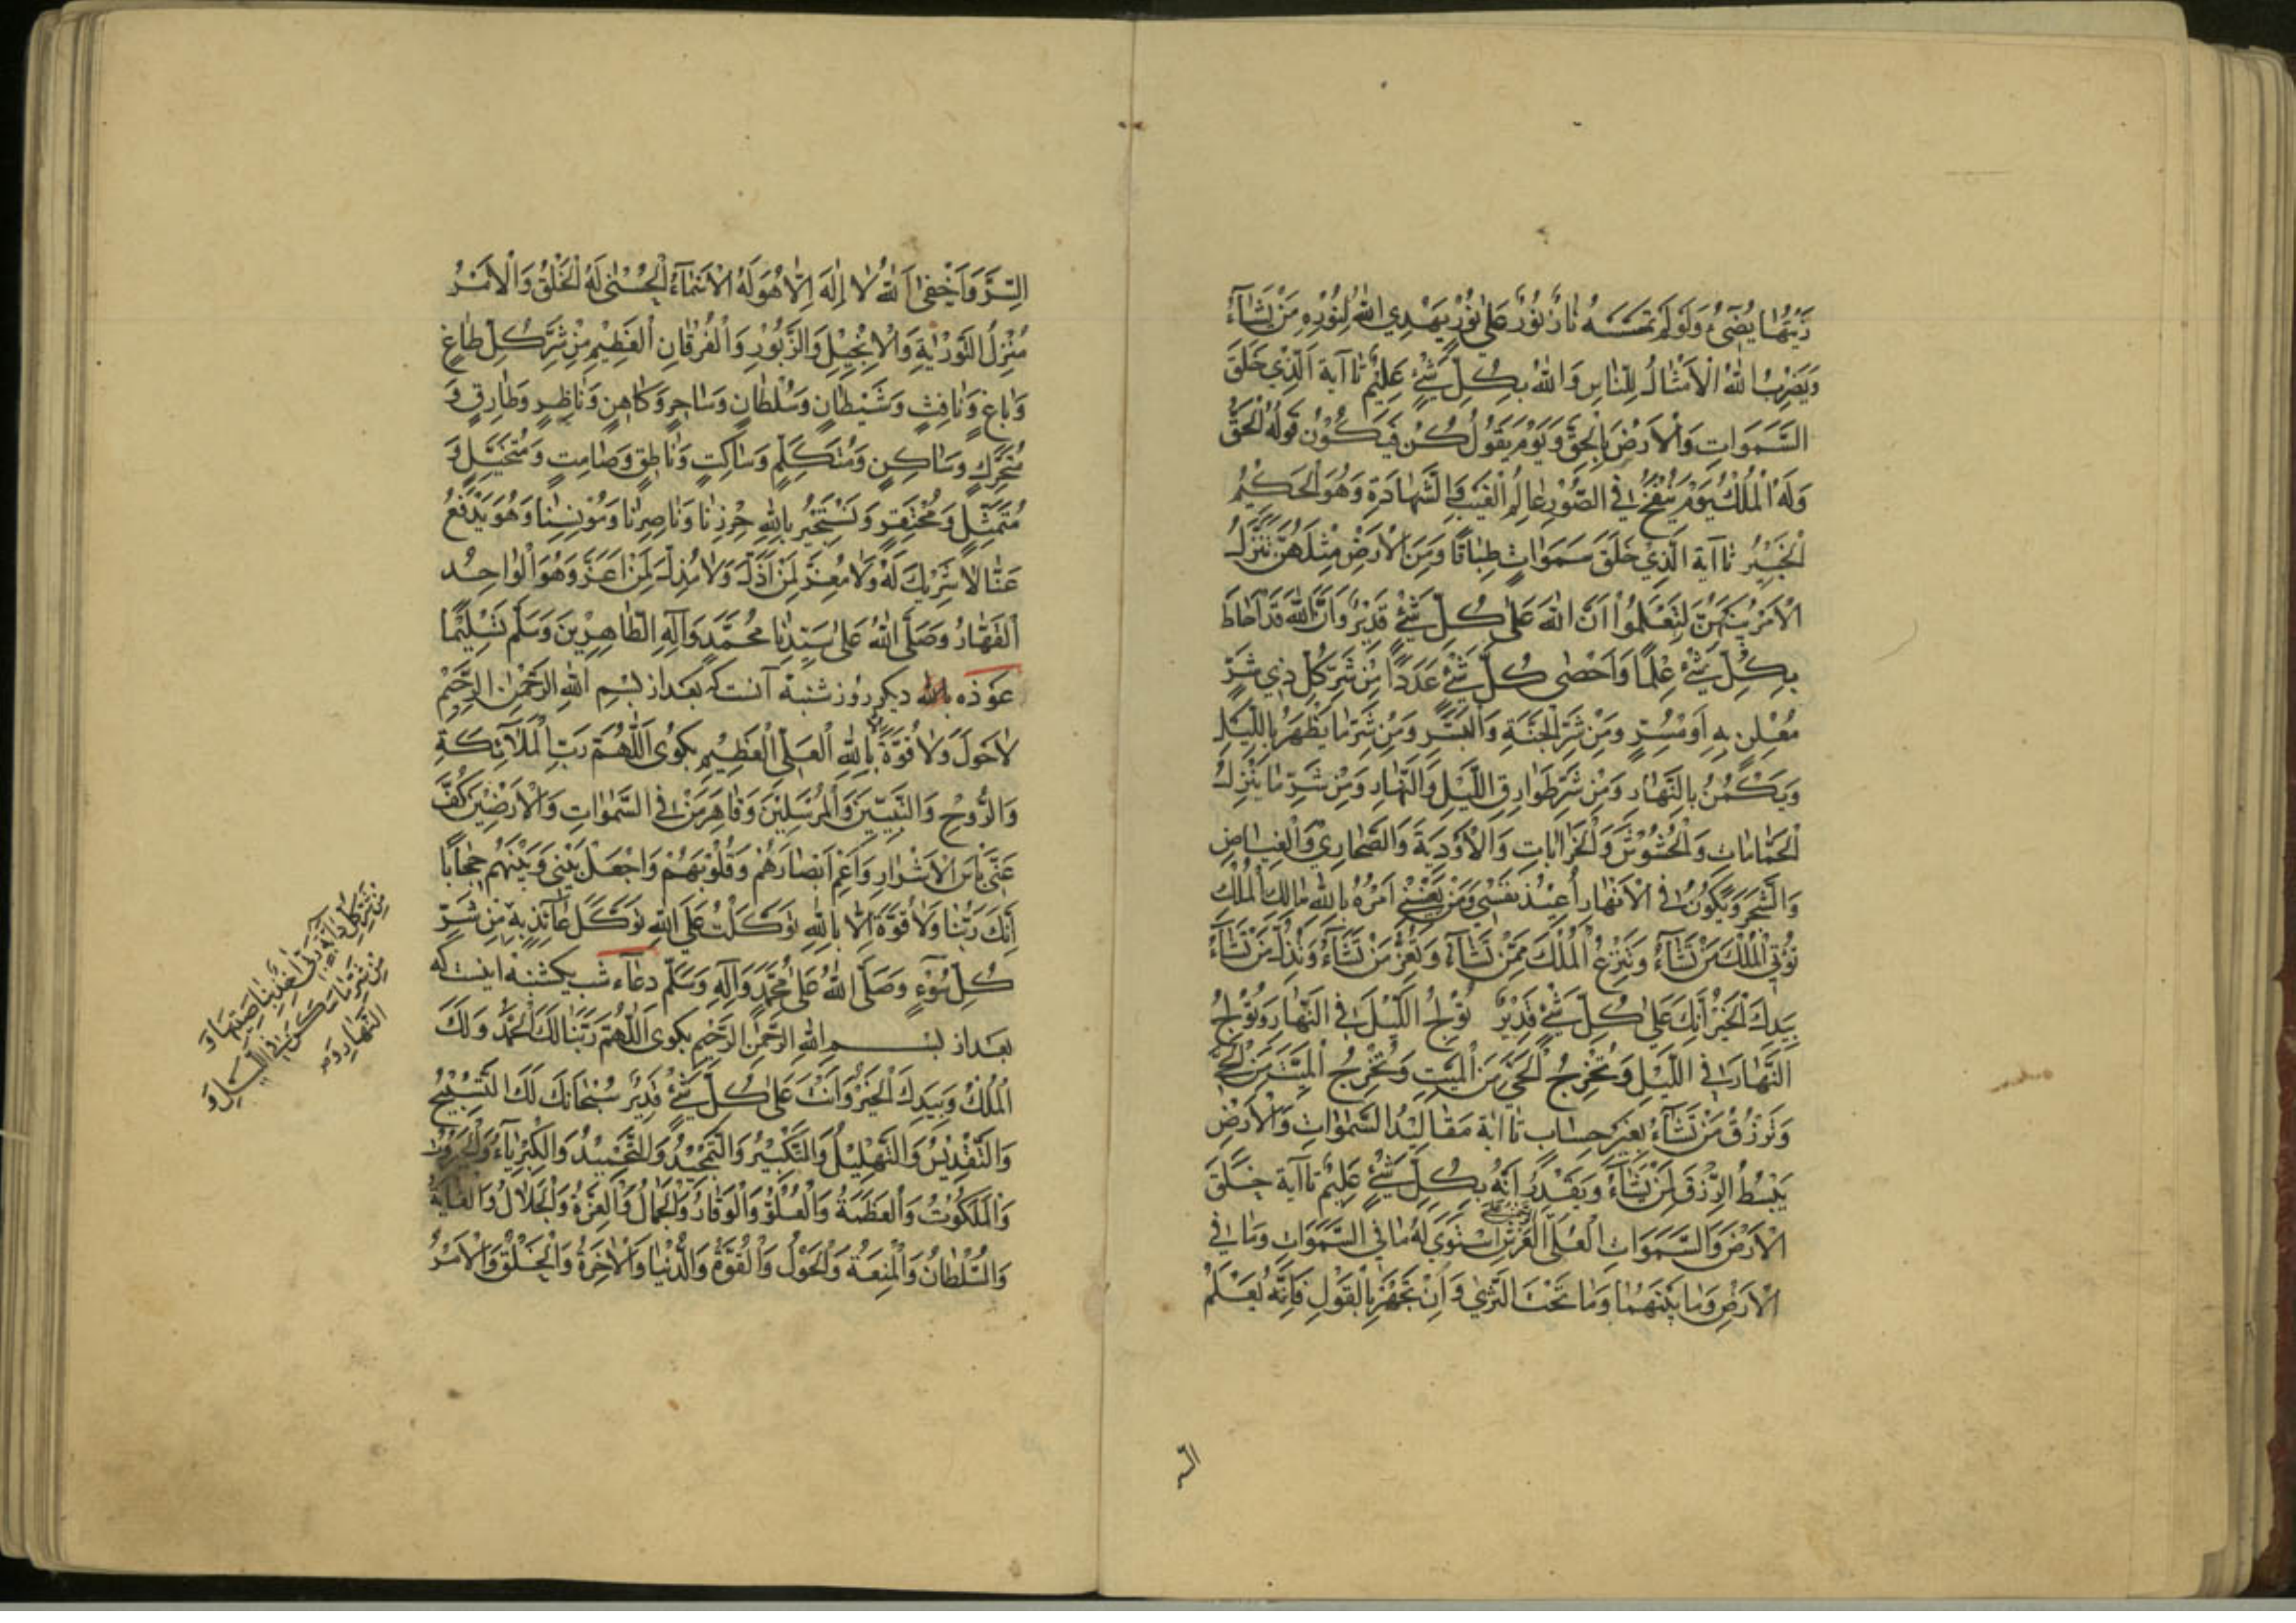 زَيْتُهَا يُضِيءُ وَلَوْ لَمْ تَمْسَسْهُ نَارٌ نُورٌ عَلَى نُورٍ يَهْدِي اللهُ لِنُورِهِ مَنْ يَشَاءُ
وَيَضْرِبُ اللهُ الْأَمْثَالَ لِلنَّاسِ وَاللهُ بِكُلِّ شَيْءٍ عَلِيمٌ تا آية الَّذِي خَلَقَ
السَّمَوَاتِ وَالْأَرْضَ بِالْحَقِّ وَيَوْمَ يَقُولُ كُنْ فَيَكُونُ قَوْلُهُ الْحَقُّ
وَلَهُ الْمُلْكُ يَوْمَ يُنْفَخُ فِي الصُّورِ عَالِمُ الْغَيْبِ وَالشَّهَادَةِ وَهُوَ الْحَكِيمُ
الْخَبِيرُ تا آية الَّذِي خَلَقَ سَمَوَاتٍ طِبَاقًا وَمِنَ الْأَرْضِ مِثْلَهُنَّ يَتَنَزَّلُ
الْأَمْرُ بَيْنَهُنَّ لِتَعْلَمُوا أَنَّ اللهَ عَلَى كُلِّ شَيْءٍ قَدِيرٌ وَأَنَّ اللهَ قَدْ أَحَاطَ
بِكُلِّ شَيْءٍ عِلْمًا وَأَحْصَى كُلَّ شَيْءٍ عَدَدًا مِنْ شَرِّ كُلِّ ذِي شَرٍّ
مُعْلِنٍ بِهِ أَوْ مُسِرٍّ وَمِنْ شَرِّ الْجِنَّةِ وَالْبَشَرِ وَمِنْ شَرِّ مَا يَظْهَرُ بِاللَّيْلِ
وَيَكْمُنُ بِالنَّهَارِ وَمِنْ شَرِّ طَوَارِقِ اللَّيْلِ وَالنَّهَارِ وَمِنْ شَرِّ مَا يَنْزِلُ
الْحَمَّامَاتِ وَالْحُشُوشَ وَالْخَرَابَاتِ وَالْأَوْدِيَةَ وَالصَّحَارِي وَالْغِيَاضَ
وَالشَّجَرَ وَيَكُونُ فِي الْأَنْهَارِ أُعِيذُ نَفْسِي وَمَنْ يَعْنِينِي أَمْرُهُ بِاللهِ مَالِكِ الْمُلْكِ
تُؤْتِي الْمُلْكَ مَنْ تَشَاءُ وَتَنْزِعُ الْمُلْكَ مِمَّنْ تَشَاءُ وَتُعِزُّ مَنْ تَشَاءُ وَتُذِلُّ مَنْ تَشَاءُ
بِيَدِكَ الْخَيْرُ إِنَّكَ عَلَى كُلِّ شَيْءٍ قَدِيرٌ تُولِجُ اللَّيْلَ فِي النَّهَارِ وَتُولِجُ
النَّهَارَ فِي اللَّيْلِ وَتُخْرِجُ الْحَيَّ مِنَ الْمَيِّتِ وَتُخْرِجُ الْمَيِّتَ مِنَ الْحَيِّ
وَتَرْزُقُ مَنْ تَشَاءُ بِغَيْرِ حِسَابٍ تا آية مَقَالِيدُ السَّمَوَاتِ وَالْأَرْضِ
يَبْسُطُ الرِّزْقَ لِمَنْ يَشَاءُ وَيَقْدِرُ إِنَّهُ بِكُلِّ شَيْءٍ عَلِيمٌ تا آية خَلَقَ
الْأَرْضَ وَالسَّمَوَاتِ الْعُلَى الرَّحْمٰنُ عَلَى الْعَرْشِ اسْتَوَى لَهُ مَا فِي السَّمَوَاتِ وَمَا فِي
الْأَرْضِ وَمَا بَيْنَهُمَا وَمَا تَحْتَ الثَّرَى وَإِنْ تَجْهَرْ بِالْقَوْلِ فَإِنَّهُ يَعْلَمُ
السر
السِّرَّ وَأَخْفَى اللهُ لَا إِلَهَ إِلَّا هُوَ لَهُ الْأَسْمَاءُ الْحُسْنَى لَهُ الْخَلْقُ وَالْأَمْرُ
مُنْزِلُ التَّوْرَاةِ وَالْإِنْجِيلِ وَالزَّبُورِ وَالْفُرْقَانِ الْعَظِيمِ مِنْ شَرِّ كُلِّ طَاغٍ
وَبَاغٍ وَنَافِثٍ وَشَيْطَانٍ وَسُلْطَانٍ وَسَاحِرٍ وَكَاهِنٍ وَنَاظِرٍ وَطَارِقٍ وَ
مُتَحَرِّكٍ وَسَاكِنٍ وَمُتَكَلِّمٍ وَسَاكِتٍ وَنَاطِقٍ وَصَامِتٍ وَمُتَخَيِّلٍ وَ
مُتَمَثِّلٍ وَمُحْتَقِرٍ وَنَسْتَجِيرُ بِاللهِ حِرْزِنَا وَنَاصِرِنَا وَمُونِسِنَا وَهُوَ يَدْفَعُ
عَنَّا لَا شَرِيكَ لَهُ وَلَا مُعِزَّ لِمَنْ أَذَلَّ وَلَا مُذِلَّ لِمَنْ أَعَزَّ وَهُوَ الْوَاحِدُ
الْقَهَّارُ وَصَلَّى اللهُ عَلَى سَيِّدِنَا مُحَمَّدٍ وَآلِهِ الطَّاهِرِينَ وَسَلَّمَ تَسْلِيمًا
عوذه دیگر روز شنبه آنست که بعد از بِسْمِ اللهِ الرَّحْمٰنِ الرَّحِيمِ
لَا حَوْلَ وَلَا قُوَّةَ إلا بِاللهِ الْعَلِيِّ الْعَظِيمِ بگوی اَللّٰهُمَّ رَبَّ الْمَلَائِكَةِ
وَالرُّوحِ وَالنَّبِيِّينَ وَالْمُرْسَلِينَ وَقَاهِرَ مَنْ فِي السَّمَوَاتِ وَالْأَرَضِينَ كُفَّ
عَنِّي بَأْسَ الْأَشْرَارِ وَأَعْمِ أَبْصَارَهُمْ وَقُلُوبَهُمْ وَاجْعَلْ بَيْنِي وَبَيْنَهُمْ حِجَابًا
إِنَّكَ رَبُّنَا وَلَا قُوَّةَ إِلَّا بِاللهِ تَوَكَّلْتُ عَلَى اللهِ تَوَكُّلَ عَائِذٍ بِهِ مِنْ شَرِّ
كُلِّ سُوءٍ وَصَلَّى اللهُ عَلَى مُحَمَّدٍ وَآلِهِ وَسَلَّمَ دعاء شب یکشنبه اینست که
بعد از بسم اللهِ الرَّحْمٰنِ الرَّحِيمِ بگوی اَللّٰهُمَّ رَبَّنَا لَكَ الْحَمْدُ وَلَكَ
الْمُلْكُ وَبِيَدِكَ الْخَيْرُ وَأَنْتَ عَلَى كُلِّ شَيْءٍ قَدِيرٌ سُبْحَانَكَ لَكَ التَّسْبِيحُ
وَالتَّقْدِيسُ وَالتَّهْلِيلُ وَالتَّكْبِيرُ وَالتَّمْجِيدُ وَالتَّحْمِيدُ وَالْكِبْرِيَاءُ وَالْجَبَرُوتُ
وَالْمَلَكُوتُ وَالْعَظَمَةُ وَالْعُلُوُّ وَالْوَقَارُ وَالْجَمَالُ وَالْعِزَّةُ وَالْجَلَالُ وَالْغَايَةُ
وَالسُّلْطَانُ وَالْمَنَعَةُ وَالْحَوْلُ وَالْقُوَّةُ وَالدُّنْيَا وَالْآخِرَةُ وَالْخَلْقُ وَالْأَمْرُ
مِنْ شَرِّ كُلِّ دَابَّةٍ رَبِّي آخِذٌ بِنَاصِيَتِهَا وَ
مِنْ شَرِّ مَا سَكَنَ فِي اللَّيْلِ وَ
النَّهَارِ وَمِ